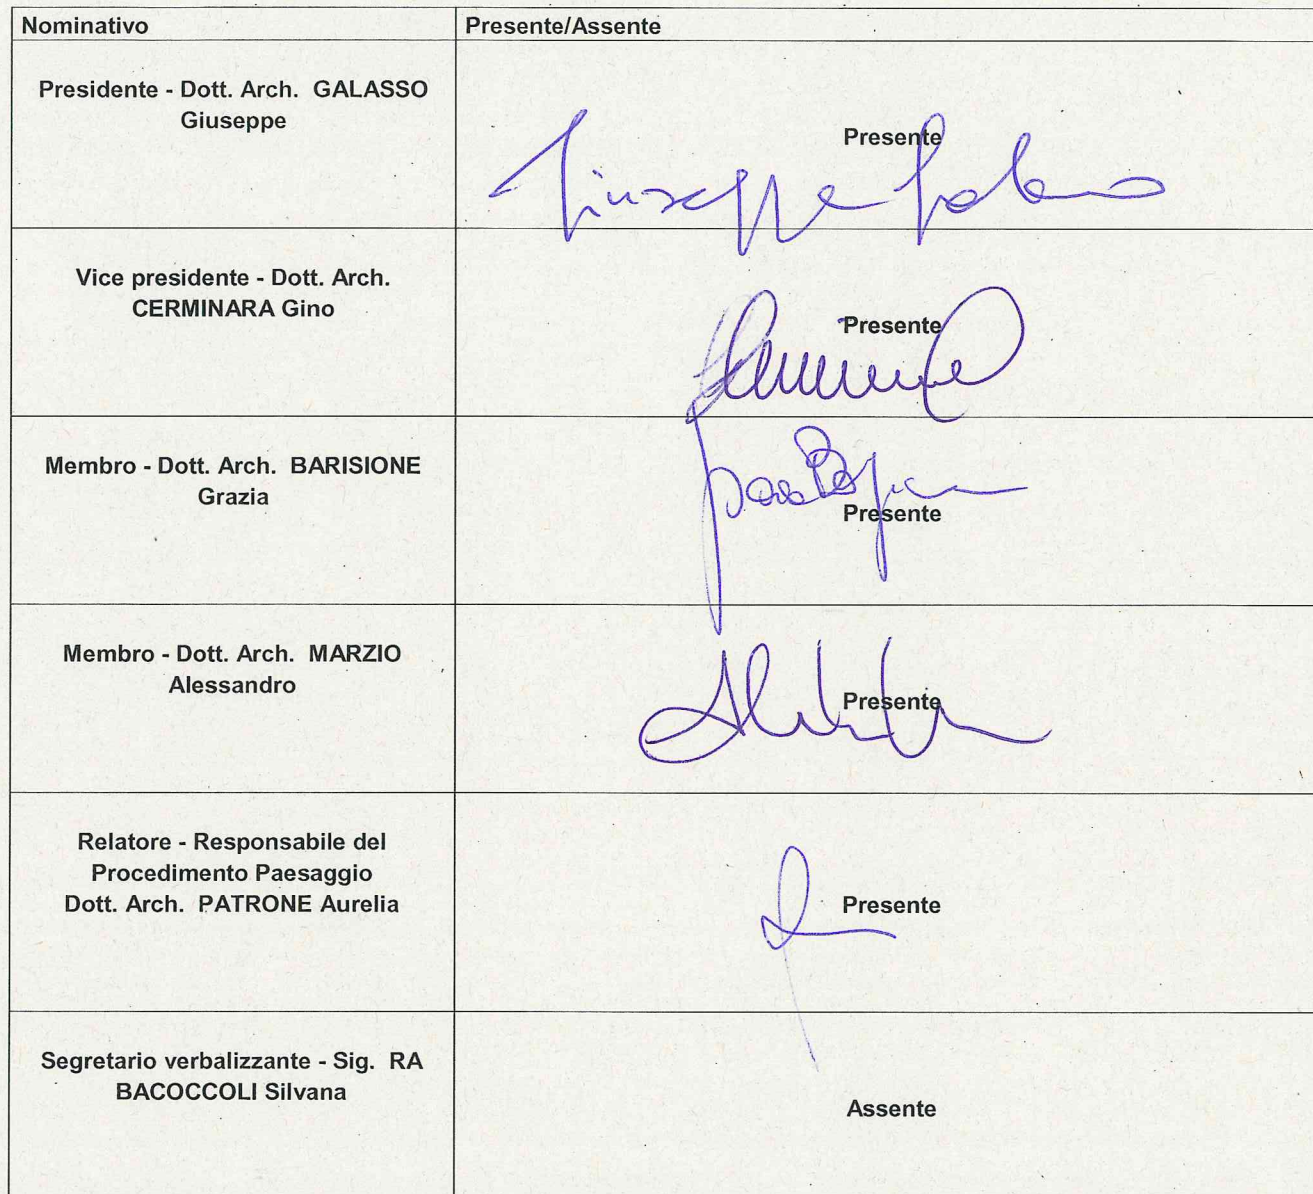 Nominativo
Presente/Assente
Presidente - Dott. Arch. GALASSO
Giuseppe
Presente
Giuseppe Galasso
Vice presidente - Dott. Arch.
CERMINARA Gino
Presente
Membro - Dott. Arch. BARISIONE
Grazia
Presente
Membro - Dott. Arch. MARZIO
Alessandro
Presente
Relatore - Responsabile del
Procedimento Paesaggio
Dott. Arch. PATRONE Aurelia
Presente
Segretario verbalizzante - Sig. RA
BACOCCOLI Silvana
Assente